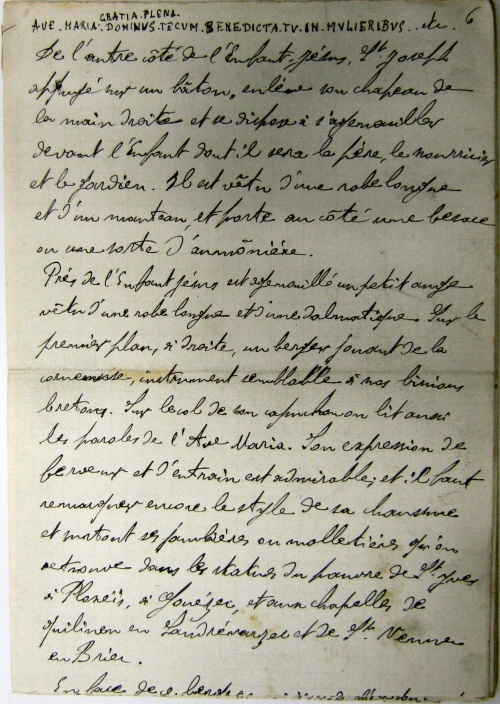 GRATIA PLENA. 6
AVE. MARIA. DOMINUS. TECUM. BENEDICTA. TV. IN. MVLIERIBVS.. etc.
De l'autre côté de l'Enfant-Jésus, St. Joseph
appuyé sur un bâton, enlève son chapeau de
la main droite et se dispose à s'agenouiller
devant l'Enfant dont il sera le père, le nourricier
et le gardien. Il est vêtu d'une robe longue
et d'un manteau et porte au côté une besace
ou une sorte d'aumônière.
Près de l'Enfant Jésus est agenouillé un petit ange
vêtu d'une robe longue et d'une dalmatique. Sur le
premier plan, à droite, un berger jouant de la
cornemuse, instrument semblable à nos binious
bretons. Sur le col de son capuchon on lit aussi
les paroles de l'Ave Maria. Son expression de
ferveur et d'entrain est admirable; et il faut
remarquer encore le style de sa chaussure
et surtout ses jambières ou molletières qu'on
retrouve dans les statues du pauvre de St. Yves
à Plonéis, à Gouézec, et aux chapelles de
Quilinen en Landrévarzec et de Ste Vennec
en Briec.
En face de ce berger